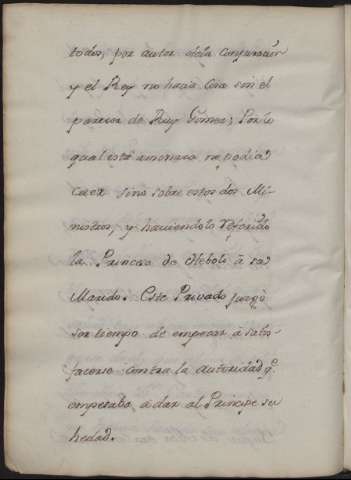 todos, por autor dela conjuracion
y el Rey no hacia cosa sin el
parecer de Ruy Gomez; Por lo
qual esta amenaza no podia
caer sino sobre estos dos Mi-
nistros, y haviendolo referido
la Princesa de Eboli à su
Marido. Este Privado juzgó
ser tiempo de empezar à satis-
facerse contra la autoridad q.e
empezaba à dar al Principe su
hedad.